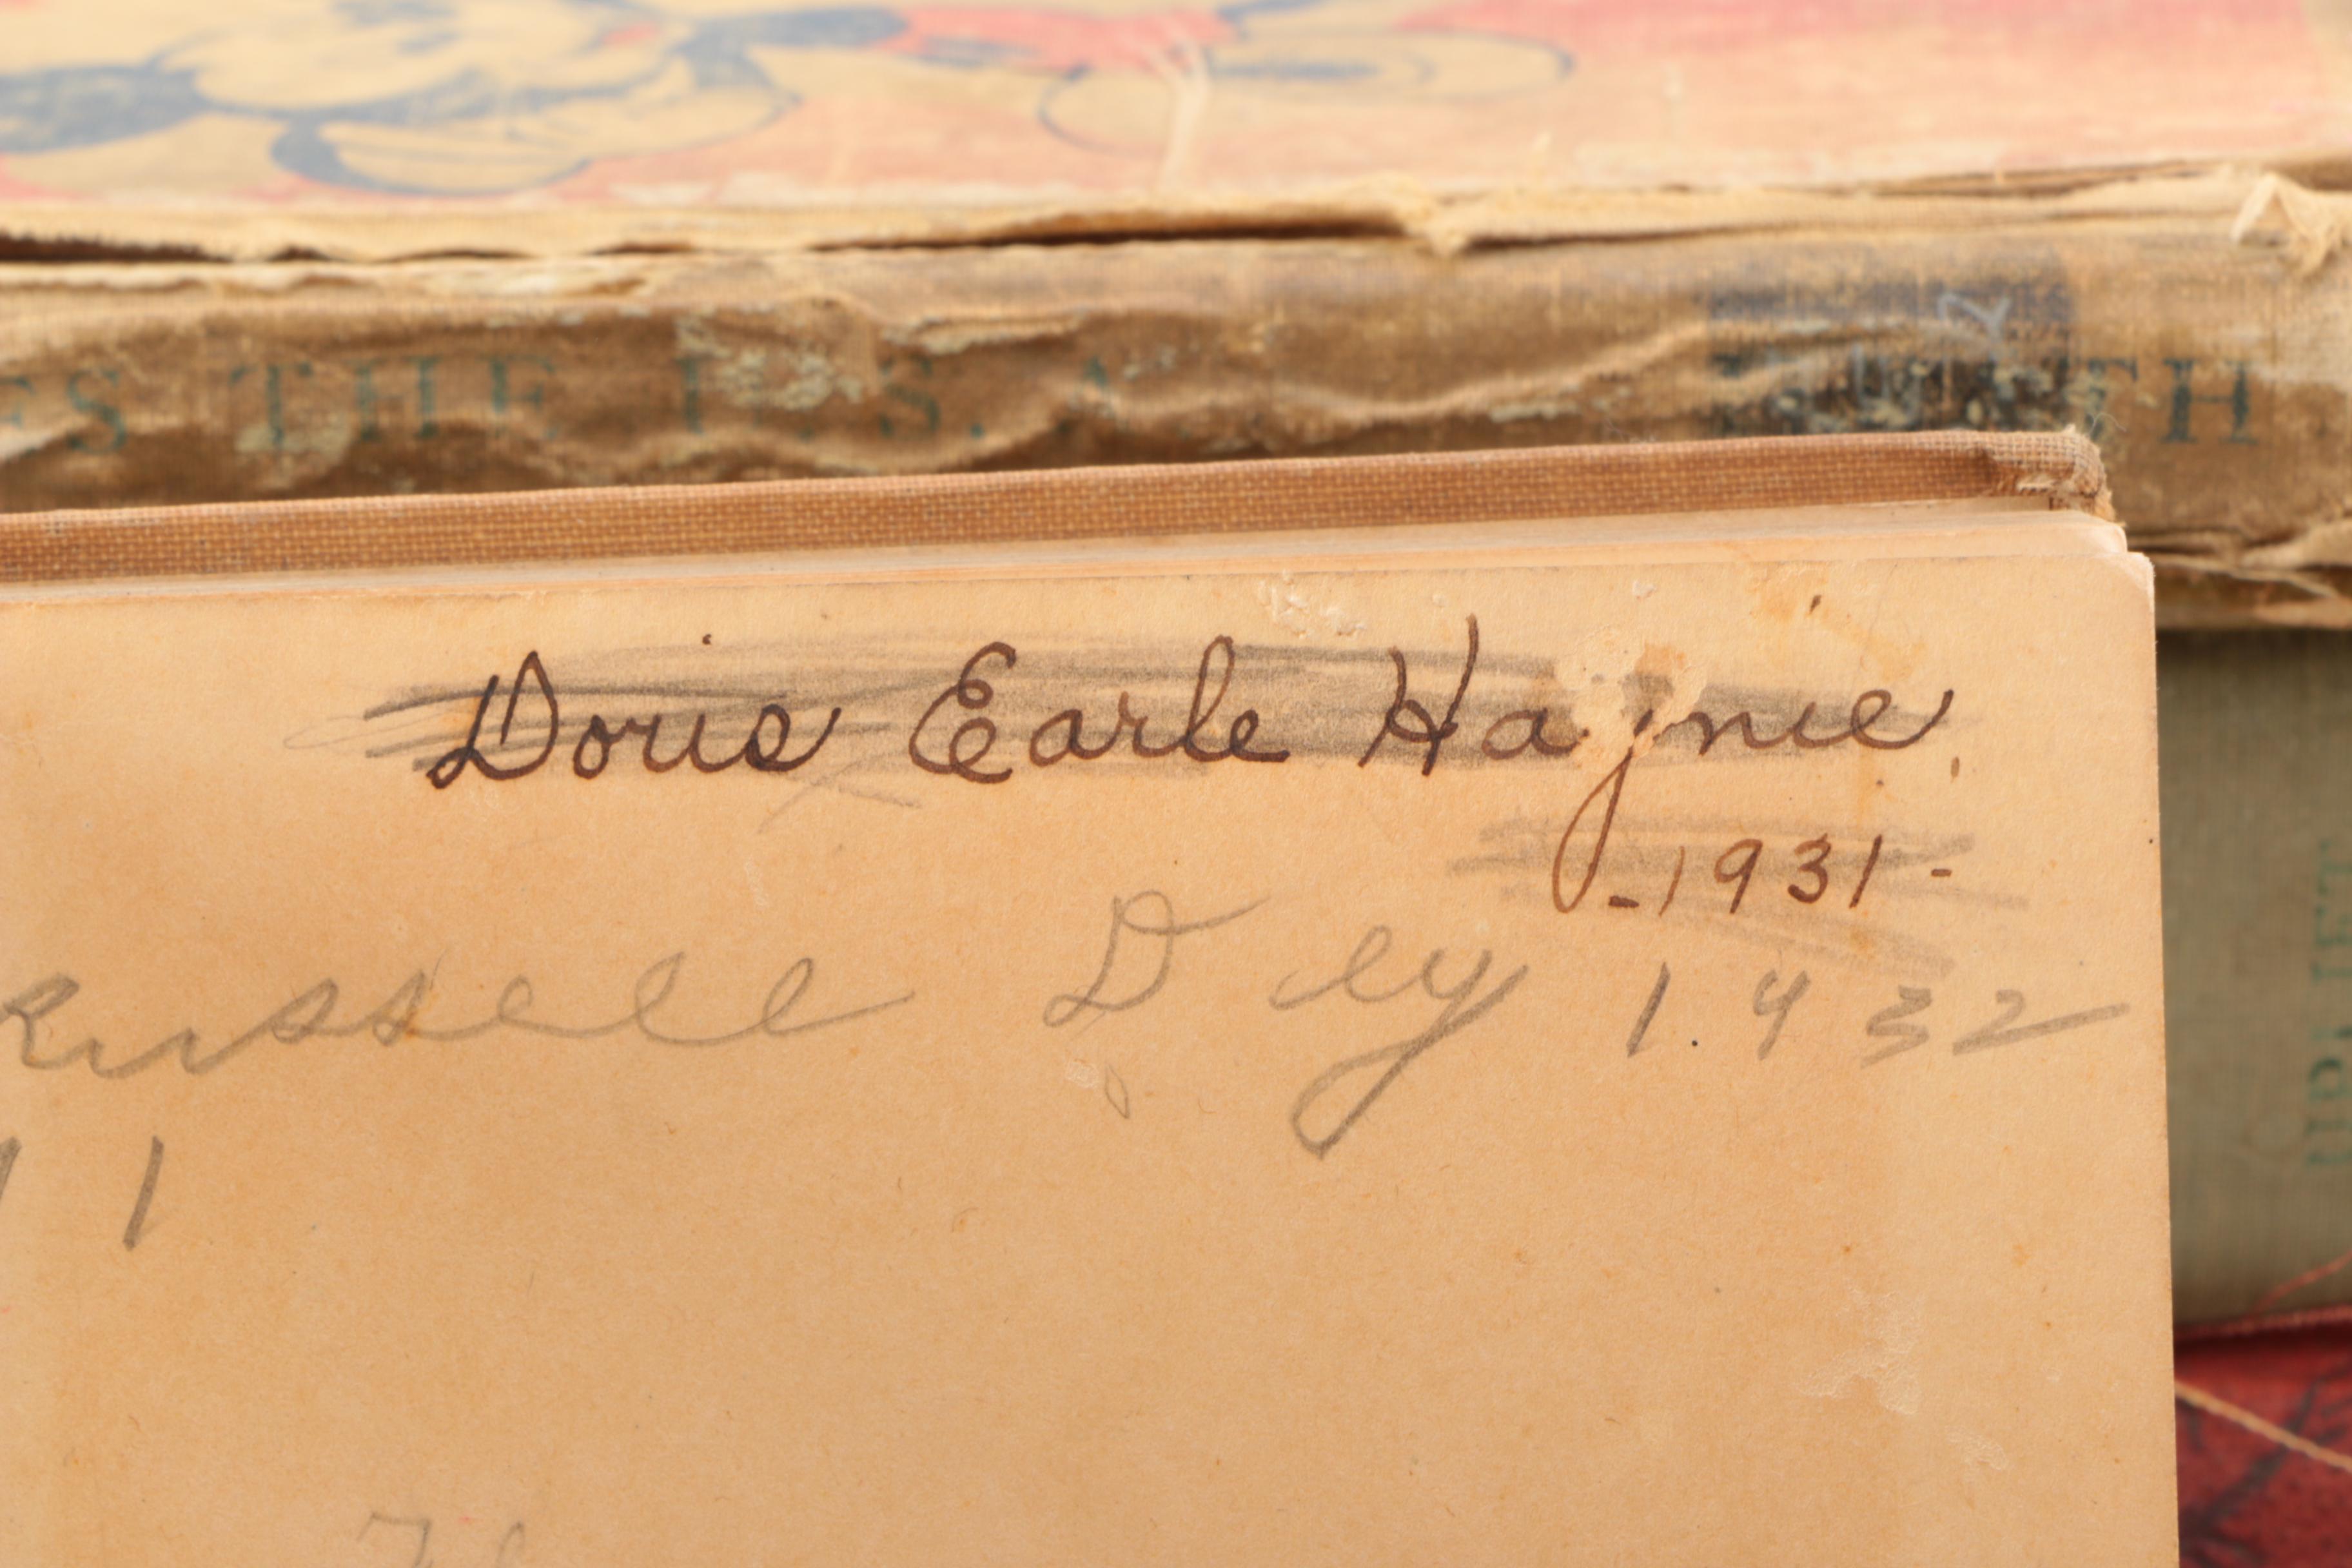 THE U.S.A.
Doris Earle Haynie
-1931-
Russell D 1932
11